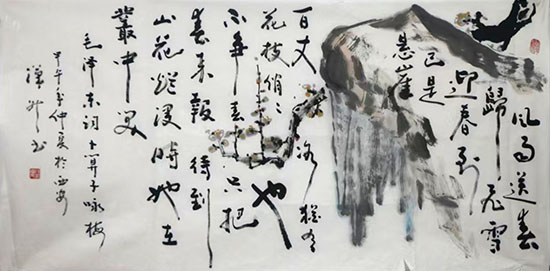 风雨送春
歸飞雪
迎春到
已是
悬崖
百丈冰猶有
花枝俏〻也
不争春只把
春来報待到
山花烂漫時她在
叢中笑
毛泽东词卜算子咏梅
甲午年仲夏於西安
书